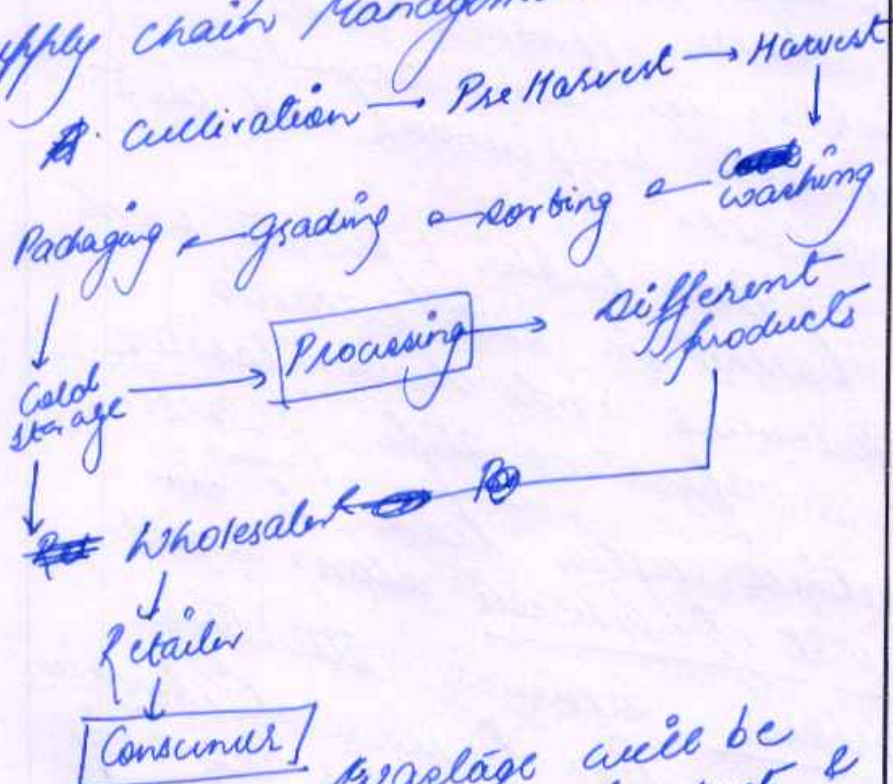 Supply chain Management
Cultivation → Pre Harvest → Harvest
Packaging ← Grading ← sorting ← washing
Processing → Different products
Cold storage
Wholesaler
Retailer
Consumer
will be
&